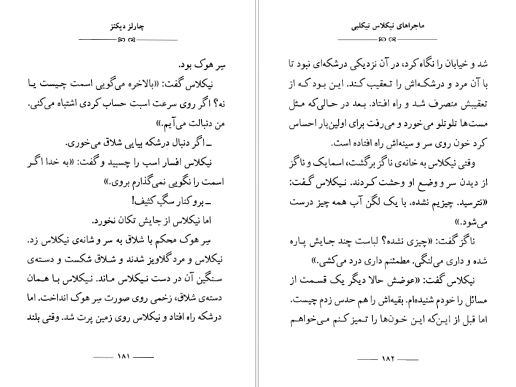 چارلز دیکنز
سِر هوک بود.
نیکلاس گفت: «بالاخره می‌گویی اسمت چیست یا
نه؟ اگر روی سرعت اسبت حساب کردی اشتباه می‌کنی.
من دنبالت می‌آیم.»
ـ اگر دنبال درشکه بیایی شلاق می‌خوری.
نیکلاس افسار اسب را چسبید و گفت: «به خدا اگر
اسمت را نگویی نمی‌گذارم بروی.»
ـ برو کنار سگِ کثیف!
اما نیکلاس از جایش تکان نخورد.
سِر هوک محکم با شلاق به سر و شانه‌ی نیکلاس زد.
نیکلاس و مرد گلاویز شدند و شلاق شکست و دسته‌ی
سنگین آن در دست نیکلاس ماند. نیکلاس با همان
دسته‌ی شلاق، زخمی روی صورت سِر هوک انداخت. اما
درشکه راه افتاد و نیکلاس روی زمین پرت شد. وقتی بلند
۱۸۱
ماجراهای نیکلاس نیکلبی
شد و خیابان را نگاه کرد، در آن نزدیکی درشکه‌ای نبود تا
با آن مرد و درشکه‌اش را تعقیب کند. این بود که از
تعقیبش منصرف شد و راه افتاد. بعد در حالی‌که مثل
مست‌ها تلوتلو می‌خورد و می‌رفت برای اولین‌بار احساس
کرد خون روی سر و سینه‌اش راه افتاده است.
وقتی نیکلاس به خانه‌ی ناگز برگشت، اسمایک و ناگز
از دیدن سر و وضع او وحشت کردند. نیکلاس گفت:
«نترسید. چیزیم نشده. با یک لگن آب همه چیز درست
می‌شود.»
ناگز گفت: «چیزی نشده؟ لباست چند جایش پاره
شده و داری می‌لنگی. مطمئنم داری درد می‌کشی.»
نیکلاس گفت: «عوضش حالا دیگر یک قسمت از
مسائل را خودم شنیده‌ام. بقیه‌اش را هم حدس زدم چیست.
اما قبل از این‌که این خون‌ها را تمیز کنم می‌خواهم
۱۸۲